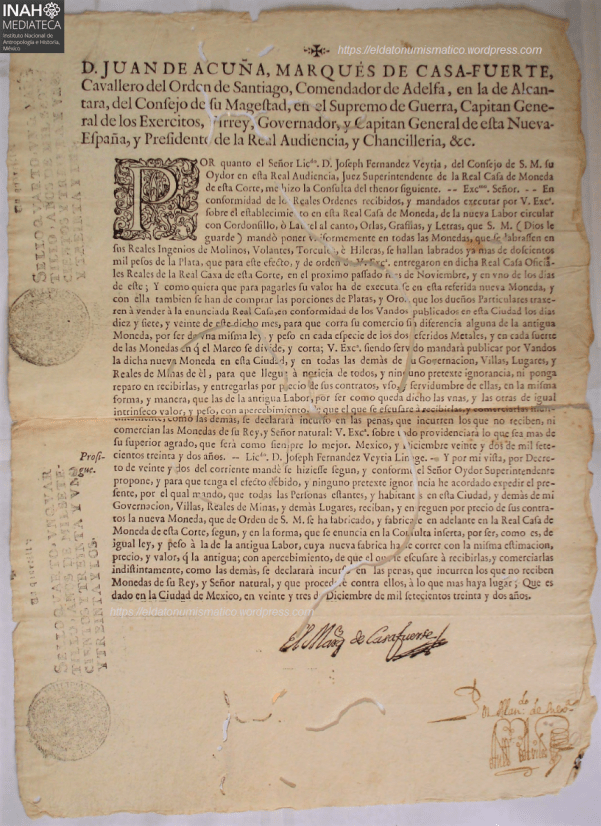 INAH
MEDIATECA
Instituto Nacional de
Antropología e Historia,
México
https://eldatonumismatico.wordpress.com
D. JUAN DE ACUÑA, MARQUÉS DE CASA-FUERTE,
Cavallero del Orden de Santiago, Comendador de Adelfa, en la de Alcan-
tara, del Consejo de su Magestad, en el Supremo de Guerra, Capitan Gene-
ral de los Exercitos, Virrey, Governador, y Capitan General de esta Nueva-
España, y Presidente de la Real Audiencia, y Chancilleria, &c.
POR quanto el Señor Licdo. D. Joseph Fernandez Veytia, del Consejo de S. M. su
Oydor en esta Real Audiencia, Juez Superintendente de la Real Casa de Moneda
de esta Corte, me hizo la Consulta del thenor siguiente. -- Excmo. Señor. -- En
conformidad de los Reales Ordenes recibidos, y mandados executar por V. Exca.
sobre él establecimiento en esta Real Casa de Moneda, de la nueva Labor circular
con Cordonsillo, ò Laurel al canto, Orlas, Grafilas, y Letras, que S. M. (Dios le
guarde) mandò poner uniformemente en todas las Monedas, que se labrassen en
sus Reales Ingenios de Molinos, Volantes, Torculos, è Hileras, se hallan labrados ya mas de doscientos
mil pesos de la Plata, que para este efecto, y de orden de V. Exca. entregaron en dicha Real Casa Oficia-
les Reales de la Real Caxa de esta Corte, en el proximo passado mes de Noviembre, y en vno de los dias
de este; Y como quiera que para pagarles su valor ha de executarse en esta referida nueva Moneda, y
con ella tambien se han de comprar las porciones de Platas, y Oros, que los dueños Particulares traxe-
ren à vender à la enunciada Real Casa, en conformidad de los Vandos publicados en esta Ciudad los dias
diez y siete, y veinte de este dicho mes, para que corra su comercio sin diferencia alguna de la antigua
Moneda, por ser de vna misma ley, y peso en cada especie de los dos referidos Metales, y en cada suerte
de las Monedas en q̃ el Marco se divide, y corta; V. Exca. siendo servido mandará publicar por Vandos
la dicha nueva Moneda en esta Ciudad, y en todas las demàs de su Governacion, Villas, Lugares, y
Reales de Minas de èl, para que llegue à noticia de todos, y ninguno pretexte ignorancia, ni ponga
reparo en recibirlas, y entregarlas por precio de sus contratos, vso, y servidumbre de ellas, en la misma
forma, y manera, que las de la antigua Labor, por ser como queda dicho las vnas, y las otras de igual
intrinseco valor, y peso, con apercebimiento, de que el que se escusare à recibirlas, y comerciarlas
como las demàs, se declararà incurso en las penas, que incurren los que no reciben, ni
comercian las Monedas de su Rey, y Señor natural: V. Exca. sobre todo providenciarà lo que sea mas de
su superior agrado, que serà como siempre lo mejor. Mexico, y Diciembre veinte y dos de mil sete-
cientos treinta y dos años. -- Licdo. D. Joseph Fernandez Veytia Linage. -- Y por mi vista, por Decre-
to de veinte y dos del corriente mandè se hiziesse segun, y conforme el Señor Oydor Superintendente
propone, y para que tenga el efecto debido, y ninguno pretexte ignorancia he acordado expedir el pre-
sente, por el qual mando, que todas las Personas estantes, y habitantes en esta Ciudad, y demàs de mi
Governacion, Villas, Reales de Minas, y demàs Lugares, reciban, y entreguen por precio de sus contra-
tos la nueva Moneda, que de Orden de S. M. se ha fabricado, y fabricare en adelante en la Real Casa de
Moneda de esta Corte, segun, y en la forma, que se enuncia en la Consulta inserta, por ser, como es, de
igual ley, y peso à la de la antigua Labor, cuya nueva fabrica ha de correr con la misma estimacion,
precio, y valor, q̃ la antigua; con apercebimiento, de que los que se escusare à recibirlas, y comerciarlas
indistintamente, como las demàs, se declararà incurso en las penas, que incurren los que no reciben
Monedas de su Rey, y Señor natural, y que procederè contra ellos, à lo que mas haya lugar; Que es
dado en la Ciudad de Mexico, en veinte y tres de Diciembre de mil setecientos treinta y dos años.
https://eldatonumismatico.wordpress.com
El Marqs de Casafuerte
Prosi-
gue.
SELLO QVARTO
TILLO, AÑOS DE
SELLO QVARTO, VN QVAR
TILLO, AÑOS DE MIL SETE-
CIENTOS Y TREINTA Y VNO,
Y TREINTA Y DOS.
Por Mando. de su Exca.